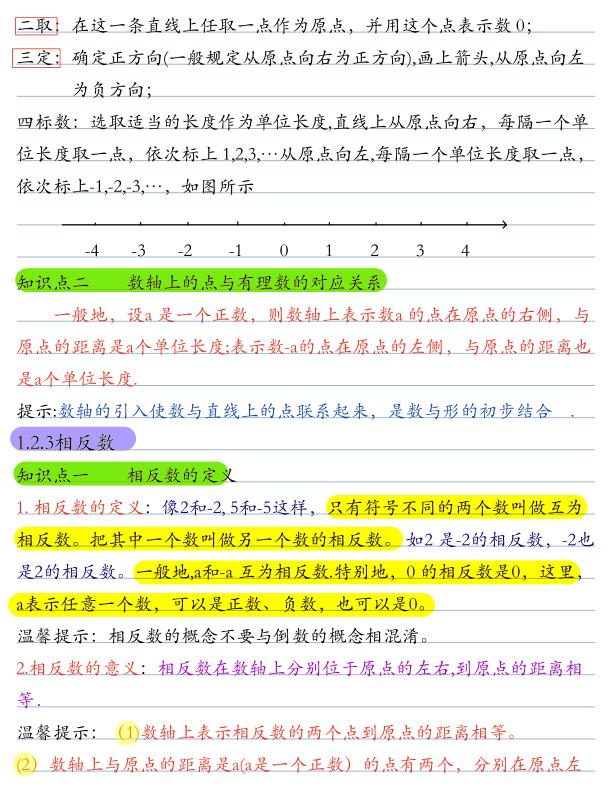 二取：在这一条直线上任取一点作为原点，并用这个点表示数 0；
三定：确定正方向(一般规定从原点向右为正方向),画上箭头,从原点向左
为负方向；
四标数：选取适当的长度作为单位长度,直线上从原点向右，每隔一个单
位长度取一点，依次标上 1,2,3,…从原点向左,每隔一个单位长度取一点，
依次标上-1,-2,-3,…，如图所示
-4 -3 -2 -1 0 1 2 3 4
知识点二 数轴上的点与有理数的对应关系
一般地，设a 是一个正数，则数轴上表示数a 的点在原点的右侧，与
原点的距离是a个单位长度;表示数-a的点在原点的左侧，与原点的距离也
是a个单位长度.
提示:数轴的引入使数与直线上的点联系起来，是数与形的初步结合 .
1.2.3相反数
知识点一 相反数的定义
1. 相反数的定义：像2和-2, 5和-5这样，只有符号不同的两个数叫做互为
相反数。把其中一个数叫做另一个数的相反数。如2 是-2的相反数，-2也
是2的相反数。一般地,a和-a 互为相反数.特别地，0 的相反数是0，这里,
a表示任意一个数，可以是正数、负数，也可以是0。
温馨提示：相反数的概念不要与倒数的概念相混淆。
2.相反数的意义：相反数在数轴上分别位于原点的左右,到原点的距离相
等.
温馨提示：（1)数轴上表示相反数的两个点到原点的距离相等。
(2）数轴上与原点的距离是a(a是一个正数）的点有两个，分别在原点左